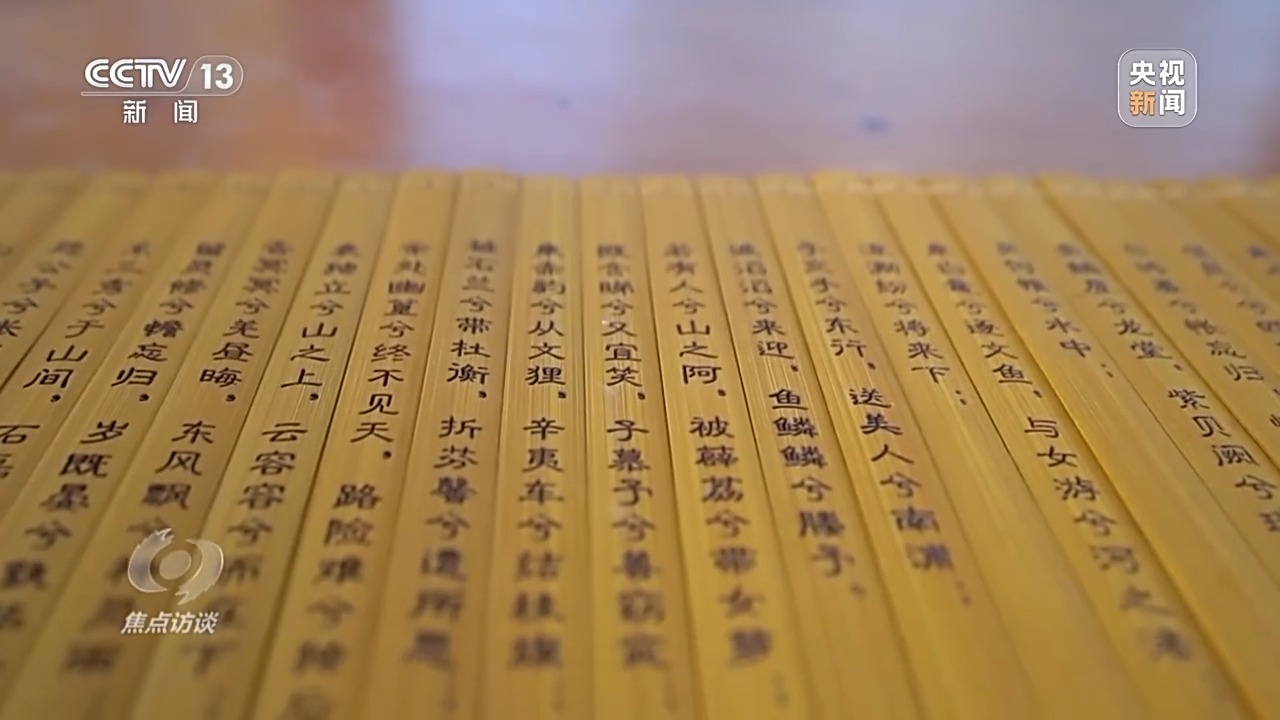 CCTV 13
新闻
央视
新闻
兮怅忘归
鱼鳞屋兮龙堂，紫贝阙兮
灵何惟兮水中；
乘白鼋兮逐文鱼，与女游兮河之渚
流澌纷兮将来下；
子交手兮东行，送美人兮南浦；
波滔滔兮来迎，鱼鳞鳞兮媵予。
若有人兮山之阿，被薜荔兮带女萝
既含睇兮又宜笑，子慕予兮善窈窕
乘赤豹兮从文狸，辛夷车兮结桂旗
被石兰兮带杜衡，折芬馨兮遗所思
余处幽篁兮终不见天，路险难兮独
表独立兮山之上，云容容兮而在下
杳冥冥兮羌昼晦，东风飘兮神灵雨
留灵修兮憺忘归，岁既晏兮孰华
采三秀兮于山间，石磊
怨公子兮怅
焦点访谈